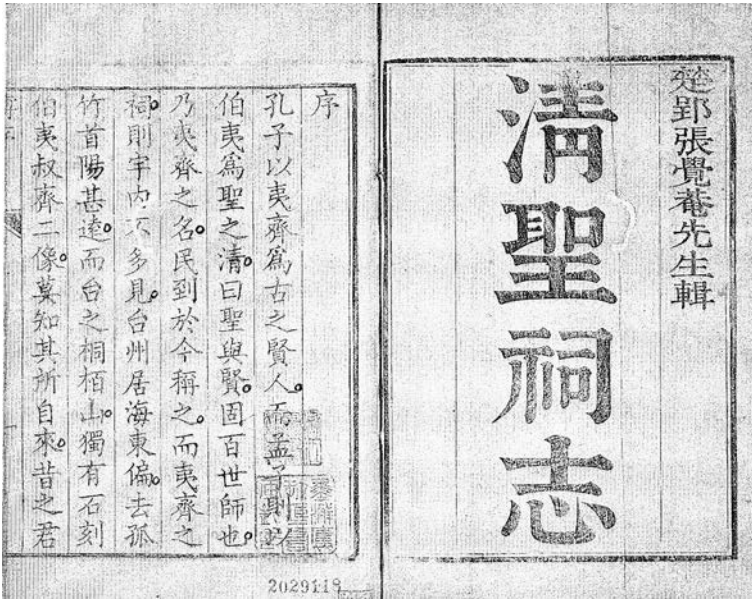 楚郢張覺菴先生輯
清聖祠志
序
孔子以夷齊爲古之賢人。而孟子則以
伯夷爲聖之清。曰聖與賢。固百世師也。
乃夷齊之名。民到於今稱之。而夷齊之
祠。則宇内不多見。台州居海東偏。去孤
竹首陽甚遠。而台之桐栢山。獨有石刻
伯夷叔齊二像。莫知其所自來。昔之君
2029118